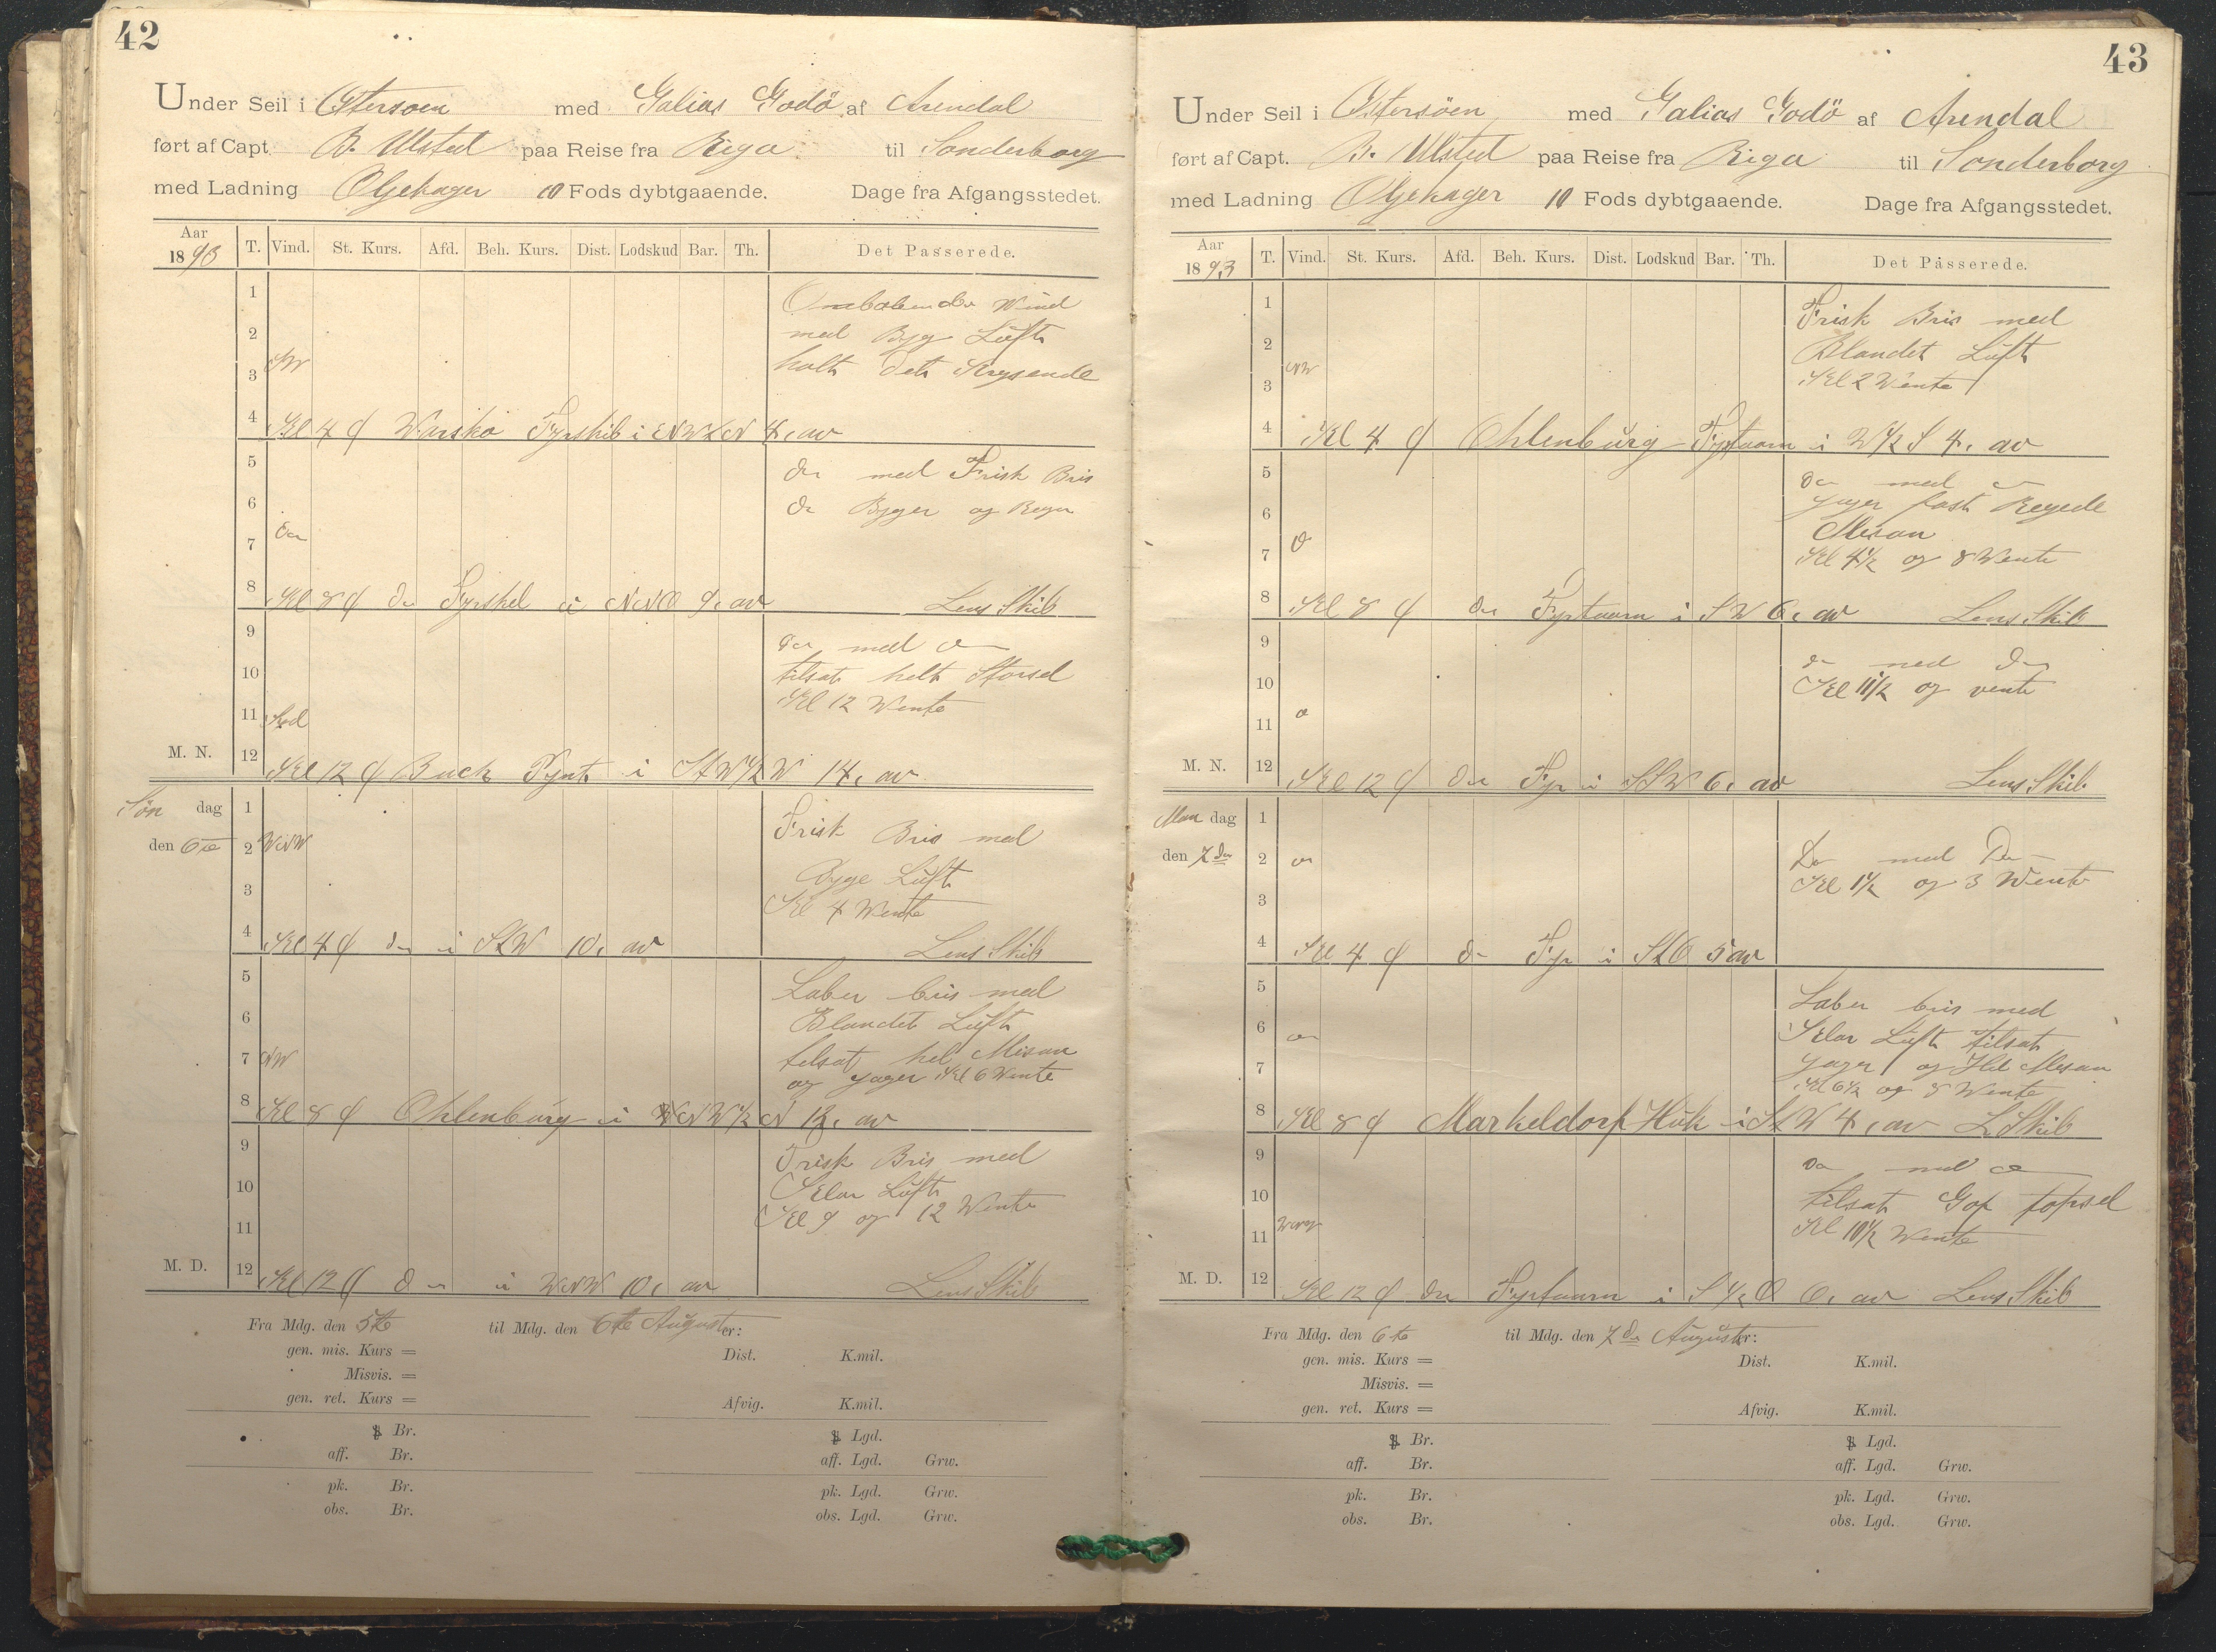 42
Under Seil i Østersoen med Galias Godö af Arendal
ført af Capt. B. Ulsted paa Reise fra Riga til Sonderborg
med Ladning Oljekager 10 Fods dybtgaaende. Dage fra Afgangsstedet.
Aar 1893 T. Vind. St. Kurs. Afd. Beh. Kurs. Dist. Lodskud Bar. Th. Det Passerede.
1
Omløbende Wind
2
med Byg Lüft
3
holt det Krysende
4 Kl 4 Fyrskib i 4, av
5
do med Frisk Bris
6
do Byger og Regn
7 do
8 Kl 8 do Fyrskel i NNO 9, av Lens Skib
9
do med do
10
tilsat helt Storsel
Kl 12 Wente
11 Syd
M. N. 12 Kl 12 Buck Pynt i StW½W 14, av
Søn dag 1
Frisk Bris med
den 6te 2 WNW
Bygge Lüft
3
Kl 4 Wente
4 Kl 4 do i StW 10, av Lens Skib
5
Laber bris med
6
Blandet Lüft
7 NW
tilsat hel Misan
og Jager Kl 6 Wente
8 Kl 8 Ohlenbürg i av
9
Frisk Bris med
10
Klar Lüft
Kl 9 og 12 Wente
11
M. D. 12 Kl 12 do i WNW 10, av Lens Skib
Fra Mdg. den 5te til Mdg. den 6te Auguster:
gen. mis. Kurs = Dist. K.mil.
Misvis. =
gen. ret. Kurs = Afvig. K.mil.
Br. Lgd.
aff. Br. aff. Lgd. Grw.
pk. Br. pk. Lgd. Grw.
obs. Br. obs. Lgd. Grw.
43
Under Seil i Østersöen med Galias Godö af Arendal
ført af Capt. B. Ulsted paa Reise fra Riga til Sonderborg
med Ladning Oljekager 10 Fods dybtgaaende. Dage fra Afgangsstedet.
Aar 1893 T. Vind. St. Kurs. Afd. Beh. Kurs. Dist. Lodskud Bar. Th. Det Passerede.
1
Frisk Bris med
2
Blandet Lüft
3 NW
Kl 2 Wente
4 Kl 4 Ohlenbürg Fyrtaarn i W½S 4, av
5
do med do
Jager fast Regede
6
Mesan
7 do
Kl 4½ og 8 Wente
8 Kl 8 do Fyrtaarn i SW 6, av Lens Skib
9
do med do
10
Kl 11½ og vente
11 do
M. N. 12 Kl 12 do Fyr i SSW 6, av Lens Skib
Man dag 1
den 7de 2 do
Do med Do
3
Kl 1½ og 3 Wente
4 Kl 4 do Fyr i StO 5 av
5
Laber bris med
6 do
Klar Lüft tilsat
7
Jager og Hel Mesan
Kl 6½ og 8 Wente
8 Kl 8 Markeldorf Huk i StW 4, av L Skib
9
do med do
10
tilsat Gaf topsel
11 WNW
Kl 10½ Wente
M. D. 12 Kl 12 do Fyrtaarn i S½O 6, av Lens Skib
Fra Mdg. den 6te til Mdg. den 7de Auguster:
gen. mis. Kurs = Dist. K.mil.
Misvis. =
gen. ret. Kurs = Afvig. K.mil.
Br. Lgd.
aff. Br. aff. Lgd. Grw.
pk. Br. pk. Lgd. Grw.
obs. Br. obs. Lgd. Grw.